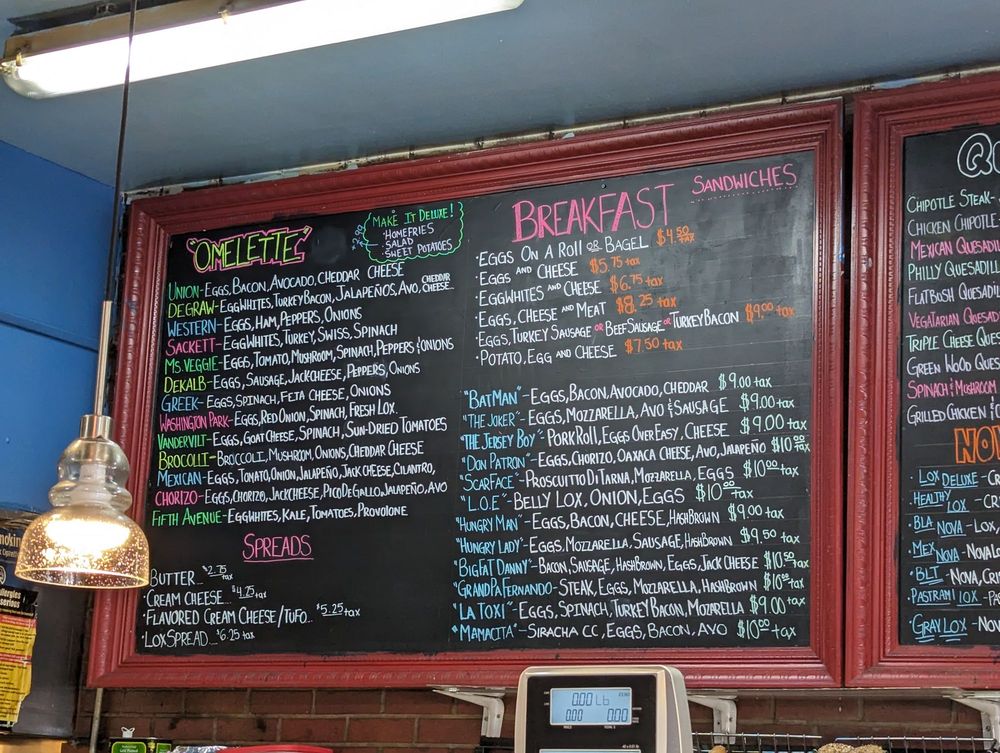 "OMELETTE"
MAKE IT DELUXE!
·HOMEFRIES
SALAD
·SWEET POTATOES
UNION-EGGS, BACON, AVOCADO, CHEDDAR CHEESE
DEGRAW-EGGWHITES, TURKEY BACON, JALAPEÑOS, AVO, CHEDDAR CHEESE
WESTERN-EGGS, HAM, PEPPERS, ONIONS
SACKETT-EGGWHITES, TURKEY, SWISS, SPINACH
MS.VEGGIE-EGGS, TOMATO, MUSHROOM, SPINACH, PEPPERS & ONIONS
DEKALB-EGGS, SAUSAGE, JACKCHEESE, PEPPERS, ONIONS
GREEK-EGGS, SPINACH, FETA CHEESE, ONIONS
WASHINGTON PARK-EGGS, RED ONION, SPINACH, FRESH LOX.
VANDERVILT-EGGS, GOAT CHEESE, SPINACH, SUN-DRIED TOMATOES
BROCOLLI-BROCCOLI, MUSHROOM, ONIONS, CHEDDAR CHEESE
MEXICAN-EGGS, TOMATO, ONION, JALAPEÑO, JACK CHEESE, CILANTRO,
CHORIZO-EGGS, CHORIZO, JACKCHEESE, PICO DE GALLO, JALAPEÑO, AVO
FIFTH AVENUE-EGGWHITES, KALE, TOMATOES, PROVOLONE
SPREADS
BUTTER... $2.75 tax
·CREAM CHEESE... $4.25 tax
·FLAVORED CREAM CHEESE/TUFO... $5.25 tax
·LOX SPREAD... $6.25 tax
BREAKFAST SANDWICHES
·EGGS ON A ROLL OR BAGEL $4.50 tax
·EGGS AND CHEESE $5.75 tax
·EGGWHITES AND CHEESE $6.75 tax
·EGGS, CHEESE AND MEAT $8.25 tax
·EGGS, TURKEY SAUSAGE OR BEEF SAUSAGE OR TURKEY BACON $9.00 tax
·POTATO, EGG AND CHEESE $7.50 tax
"BATMAN"-EGGS, BACON, AVOCADO, CHEDDAR $9.00 tax
"THE JOKER"-EGGS, MOZZARELLA, AVO & SAUSAGE $9.00 tax
"THE JERSEY BOY"-PORK ROLL, EGGS OVER EASY, CHEESE $9.00 tax
"DON PATRON"-EGGS, CHORIZO, OAXACA CHEESE, AVO, JALAPEÑO $10.00 tax
"SCARFACE"-PROSCUITTO DI TARNA, MOZZARELLA, EGGS $10.00 tax
"L.O.E"-BELLY LOX, ONION, EGGS $10.00 tax
"HUNGRY MAN"-EGGS, BACON, CHEESE, HASHBROWN $9.00 tax
"HUNGRY LADY"-EGGS, MOZZARELLA, SAUSAGE, HASHBROWN $9.50 tax
"BIG FAT DANNY"-BACON, SAUSAGE, HASHBROWN, EGGS, JACK CHEESE $10.50 tax
"GRANDPA FERNANDO-STEAK, EGGS, MOZZARELLA, HASHBROWN $10.00 tax
"LA TOXI"-EGGS, SPINACH, TURKEY BACON, MOZARELLA $9.00 tax
"MAMACITA"-SIRACHA CC, EGGS, BACON, AVO $10.00 tax
CHIPOTLE STEAK-
CHICKEN CHIPOTLE
MEXICAN QUESADIL
PHILLY QUESADILL
FLATBUSH QUESADI
VEGATARIAN QUESAD
TRIPLE CHEESE QUES
GREEN WOOD QUES
SPINACH & MUSHROOM
GRILLED CHICKEN &
NO
LOX DELUXE-CR
·HEALTHY LOX-CR
·BLA NOVA-LOX,
·MEX NOVA-NOVA LO
·BLT-NOVA, CRI
·PASTRAMI LOX-PAS
·GRAV LOX-NOV
0.00 Lb
0.00 0.00